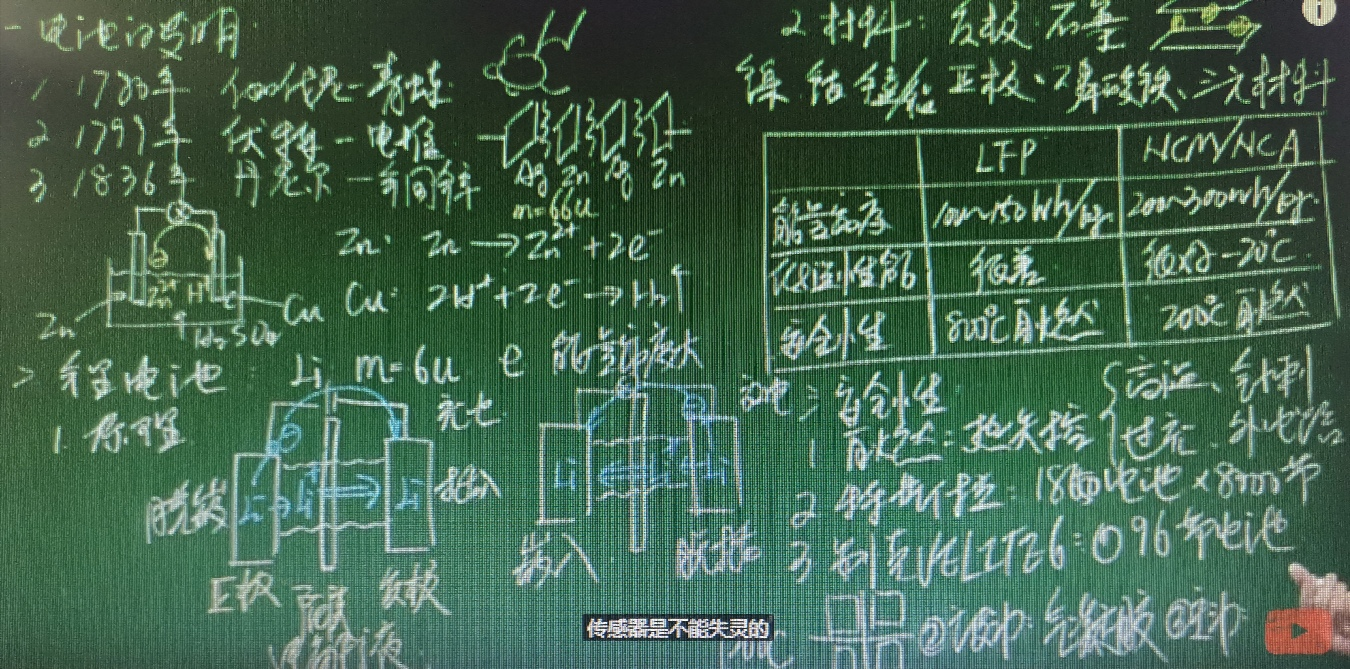 一 电池的发明
1 1780年 伽伐尼—青蛙
2 1799年 伏特—电堆
3 1836年 丹尼尔—铜锌
Ag Zn Ag Zn
m=66u
Zn: Zn → Zn²⁺ + 2e⁻
Cu: 2H⁺ + 2e⁻ → H₂↑
Zn
Zn²⁺ H⁺
Cu
H₂SO₄
二 锂电池: Li m=6u e 能量密度大
1. 原理
充电
放电
脱嵌 Li Li⁺ Li 嵌入
正极 隔膜 负极
电解液
Li Li⁺ Li
嵌入 脱嵌
2 材料: 负极: 石墨
镍 钴 锰 铝 正极: 磷酸铁、三元材料
LFP NCM/NCA
能量密度 100~150Wh/kg 200~300Wh/kg
低温性能 很差 很好 -20℃
安全性 800℃自燃 200℃自燃
三 安全性
1 自燃: 热失控 { 高温、针刺
过充、外电路
2 特斯拉: 18650电池 × 8000节
3 别克VELITE6: ① 96节电池
② 气凝胶 ③
传感器是不能失灵的